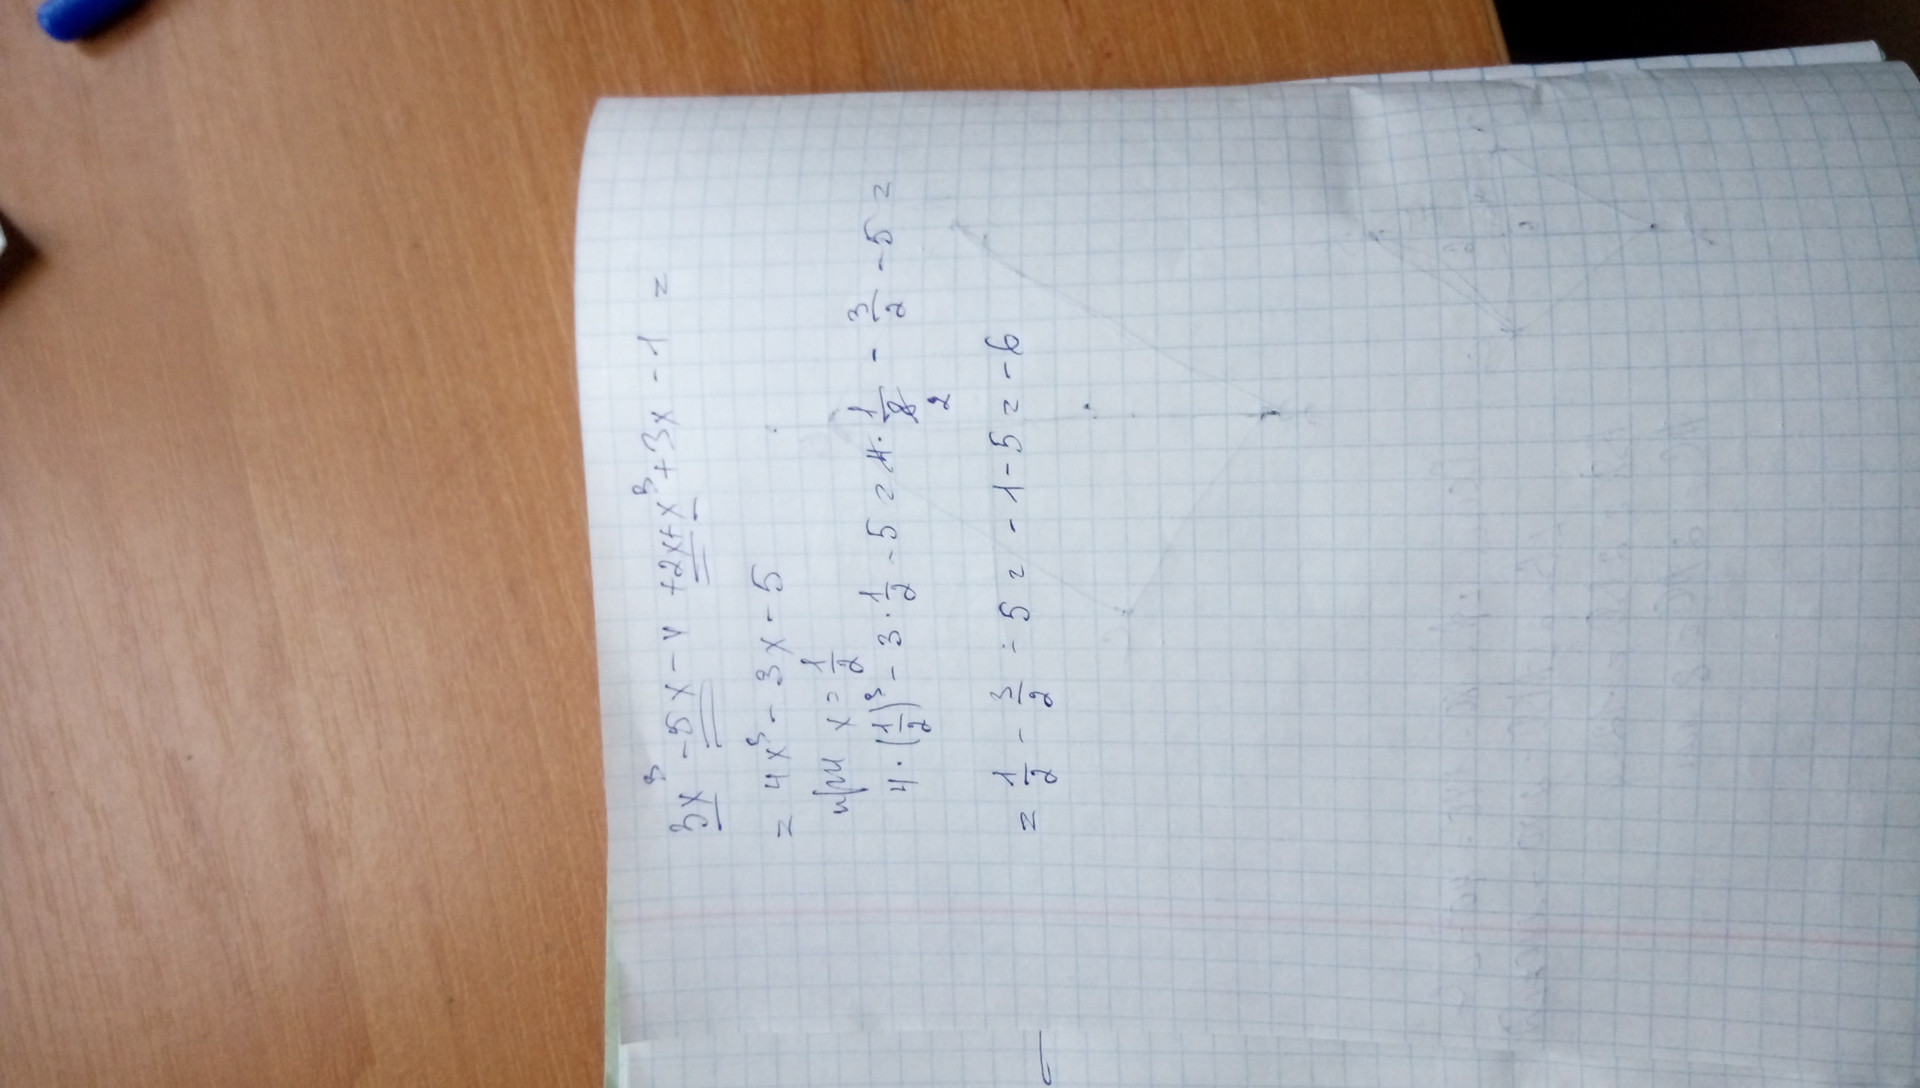 3x³ - 5x - 4 + 2x + x³ + 3x - 1 =
= 4x³ - 3x - 5
при x = 1/2
4 · (1/2)³ - 3 · 1/2 - 5 = 4 · 1/8 - 3/2 - 5 =
2
= 1/2 - 3/2 - 5 = - 1 - 5 = - 6